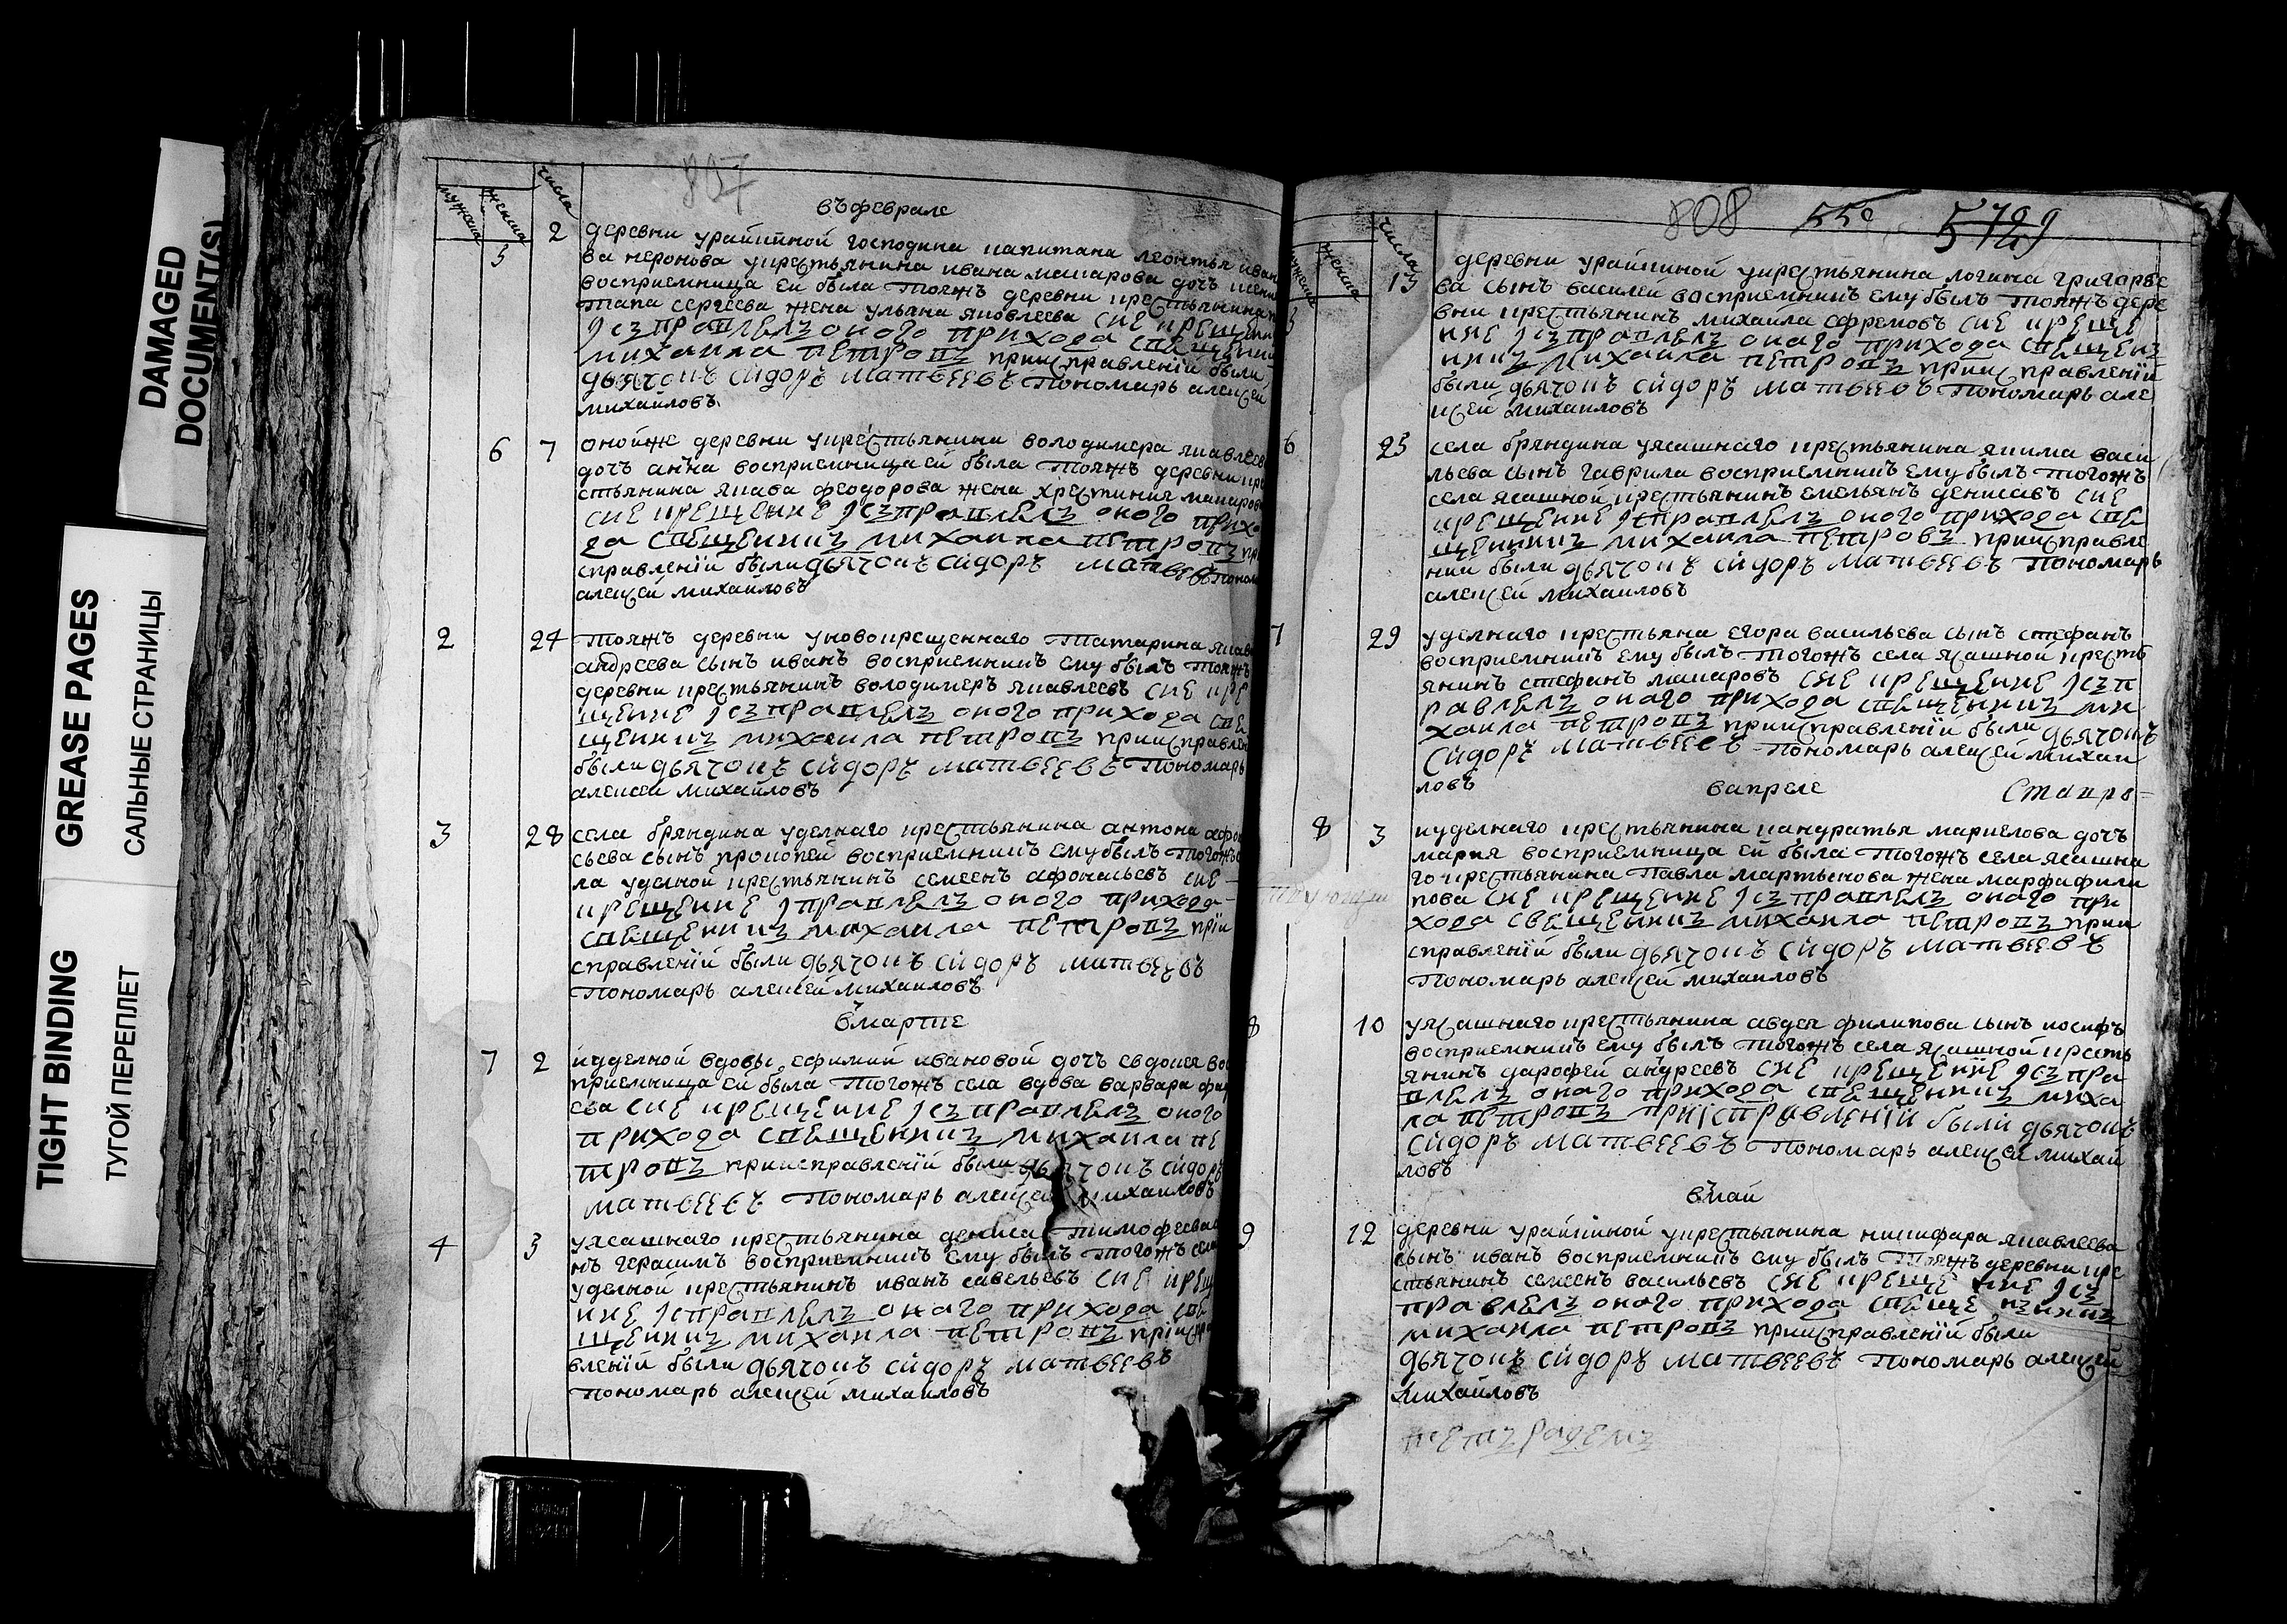 DAMAGED
DOCUMENT(S)
GREASE PAGES
САЛЬНЫЕ СТРАНИЦЫ
TIGHT BINDING
ТУГОЙ ПЕРЕПЛЕТ
807
мужеска женска числа
въ феврале
5 2 деревни урайкиной господина капитана леонтья иван
ва неронова укрестьянина ивана макарова дочь
восприемница ей была тояжъ деревни крестьянина
сергеева жена ульяна яковлева сие крещени
исправлелъ оного прихода свещенни
михаила петровъ приисправлении были
дьячокъ сидоръ матвеевъ пономарь алексей
михайловъ
6 7 онойже деревни укрестьянина володимера яковлев
дочь анна восприемница ей была тояжъ деревни кре
стьянина якова феодорова жена христиния макаров
сие крещение исправлелъ оного прихо
да свещенникъ михаила петровъ пр
справлении были дьячокъ сидоръ матвеевъ поном
алексей михайловъ
2 24 тояжъ деревни уновокрещеннаго татарина яков
андреева сынъ иванъ восприемникъ ему былъ тояжъ
деревни крестьянинъ володимеръ яковлевъ сие кре
щение исправлелъ оного прихода све
щенникъ михаила петровъ приисправлен
были дьячокъ сидоръ матвеевъ пономарь
алексей михайловъ
3 28 села бряндина уделнаго крестьянина антона афон
сьева сынъ прокопей восприемникъ ему былъ тогожъ
ла уделной крестьянинъ семенъ афонасьевъ сие
крещение исправлелъ оного прихода
свещенникъ михаила петровъ прии
справлении были дьячокъ сидоръ матвеевъ
пономарь алексей михайловъ
вмарте
7 2 иуделной вдовы ефимии ивановой дочь евдокея вос
приемница ей была тогожъ села вдова варвара
ева сие крещение исправлелъ оного
прихода свещенникъ михаила пе
тровъ приисправлении были дьячокъ сидоръ
матвеевъ пономарь алексей михайловъ
4 3 уясашнаго крестьянина дениса тимофеева
нъ герасимъ восприемникъ ему былъ тогожъ села
уделной крестьянинъ иванъ савельевъ сие креще
ние исправлелъ оного прихода све
щенникъ михаила петровъ приисправ
влении были дьячокъ сидоръ матвеевъ
пономарь алексей михайловъ
808 5729
женска числа
13 деревни урайкиной укрестьянина логина григорье
ва сынъ василей восприемникъ ему былъ тояжъ дере
вни крестьянинъ михайла ефремовъ сие креще
ние исправлелъ оного прихода свещен
никъ михаила петровъ приисправлении
были дьячокъ сидоръ матвеевъ пономарь але
ксей михайловъ
6 25 села бряндина уясашнаго крестьянина якима васи
льева сынъ гаврила восприемникъ ему былъ тогожъ
села ясашной крестьянинъ емельянъ денисавъ сие
крещение исправлелъ оного прихода све
щенникъ михаила петровъ приисправле
нии были дьячокъ сидоръ матвеевъ пономарь
алексей михайловъ
7 29 уделнаго крестьяна егора васильева сынъ стефанъ
восприемникъ ему былъ тогожъ села ясашной крестъ
янинъ стефанъ макаровъ сие крещение исп
равлелъ оного прихода свещенникъ ми
хаила петровъ приисправлении были дьячокъ
сидоръ матвеевъ пономарь алексей михаи
ловъ
вапреле
8 3 иуделнаго крестьянина кандратья маркелова дочь
мария восприемница ей была тогожъ села ясашна
го крестьянина павла мартынова жена марфа фили
пова сие крещение исправлелъ оного при
хода свещенникъ михаила петровъ прии
справлении были дьячокъ сидоръ матвеевъ
пономарь алексей михаиловъ
8 10 уясашнаго крестьянина авдея филипова сынъ иосифъ
восприемникъ ему былъ тогожъ села ясашной кресть
янинъ дарофей андреевъ сие крещение испра
влелъ оного прихода свещенникъ миха
ла петровъ приисправлении были дьячокъ
сидоръ матвеевъ пономарь алексей михаи
ловъ
вмаи
9 12 деревни урайкиной укрестьянина никифара яковлева
сынъ иванъ восприемникъ ему былъ тояжъ деревни кре
стьянинъ семенъ васильевъ сие крещение ис
правлелъ оного прихода свещенникъ
михаила петровъ приисправлении были
дьячокъ сидоръ матвеевъ пономарь алексей
михайловъ